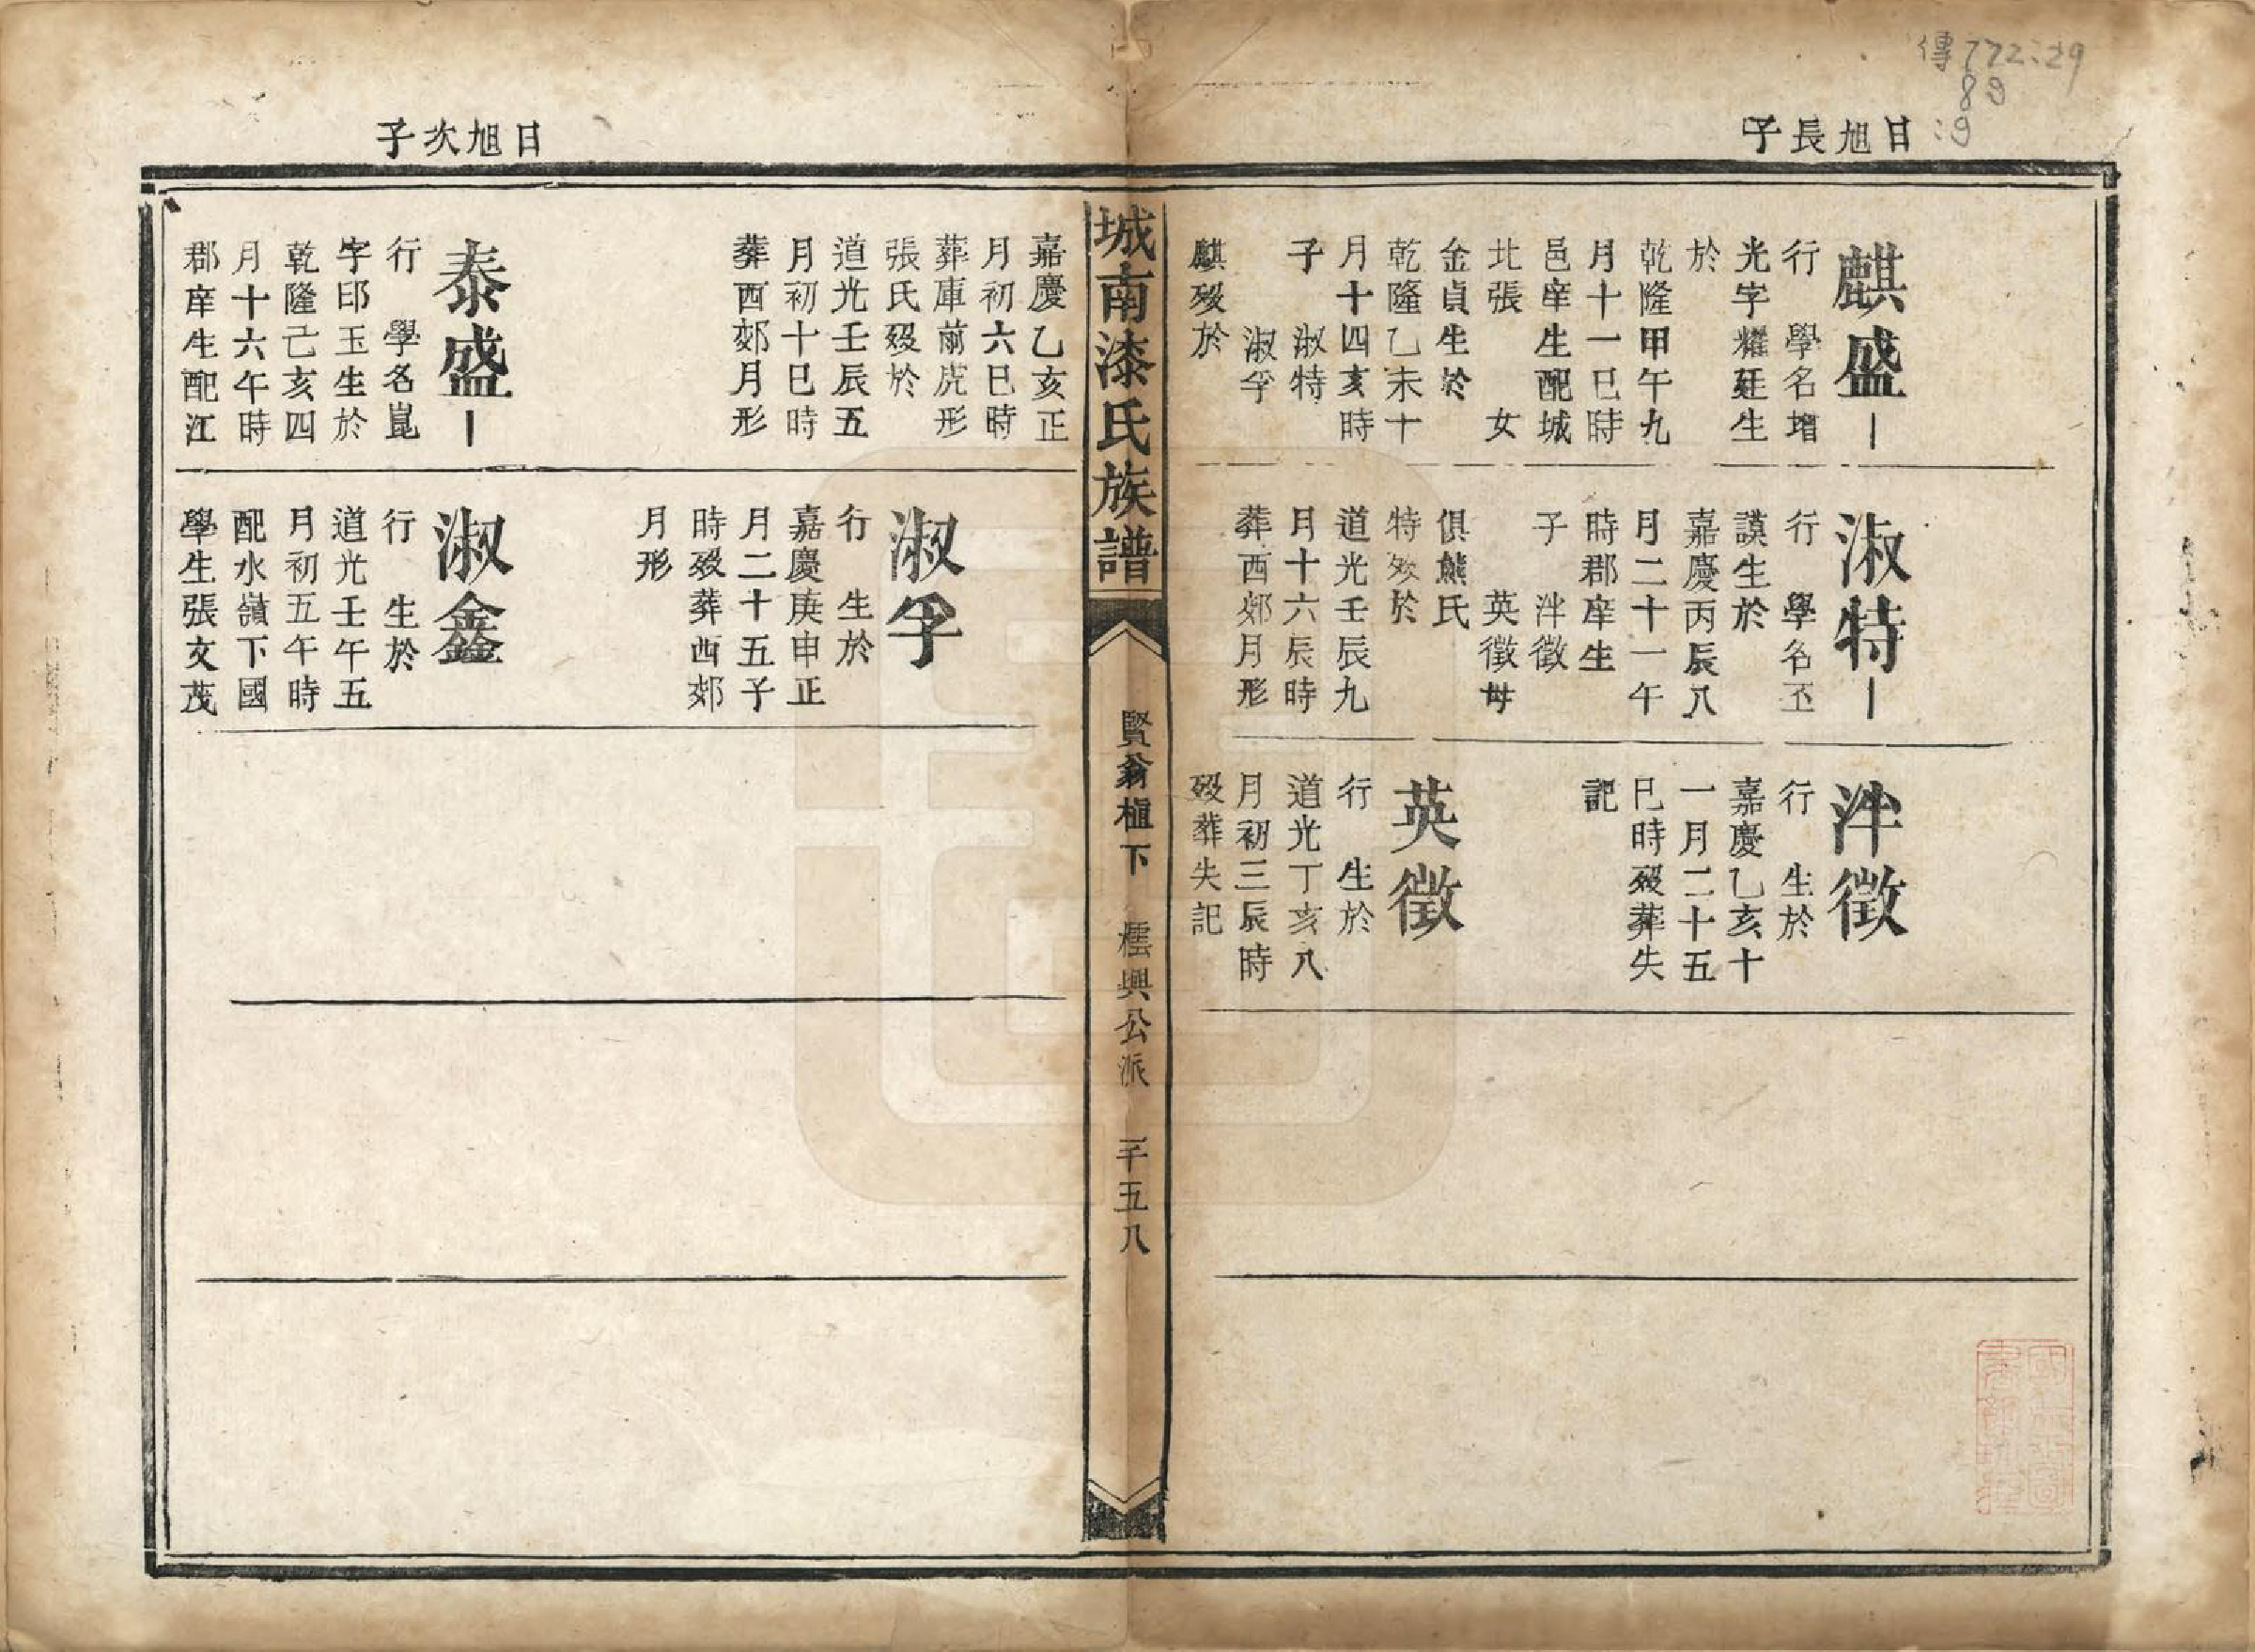 傳772.29
89
:9
日旭長子
麒盛
行　學名增
光字耀廷生
於
乾隆甲午九
月十一巳時
邑庠生配城
北張　　女
金貞生於
乾隆乙未十
月十四亥時
子　淑特
淑孚
麒歿於
淑特
行　學名丕
謨生於
嘉慶丙辰八
月二十一午
時郡庠生
子　泮徵
英徵母
俱熊氏
特歿於
道光壬辰九
月十六辰時
葬西郊月形
泮徵
行　生於
嘉慶乙亥十
一月二十五
巳時歿葬失
記
英徵
行　生於
道光丁亥八
月初三辰時
歿葬失記
城南漆氏族譜
賢翁植下　橒興公派　三千五八
日旭次子
嘉慶乙亥正
月初六巳時
葬庫前虎形
張氏歿於
道光壬辰五
月初十巳時
葬西郊月形
泰盛
行　學名崑
字印玉生於
乾隆己亥四
月十六午時
郡庠生配江
淑孚
行　生於
嘉慶庚申正
月二十五子
時歿葬西郊
月形
淑鑫
行　生於
道光壬午五
月初五午時
配水嶺下國
學生張文茂